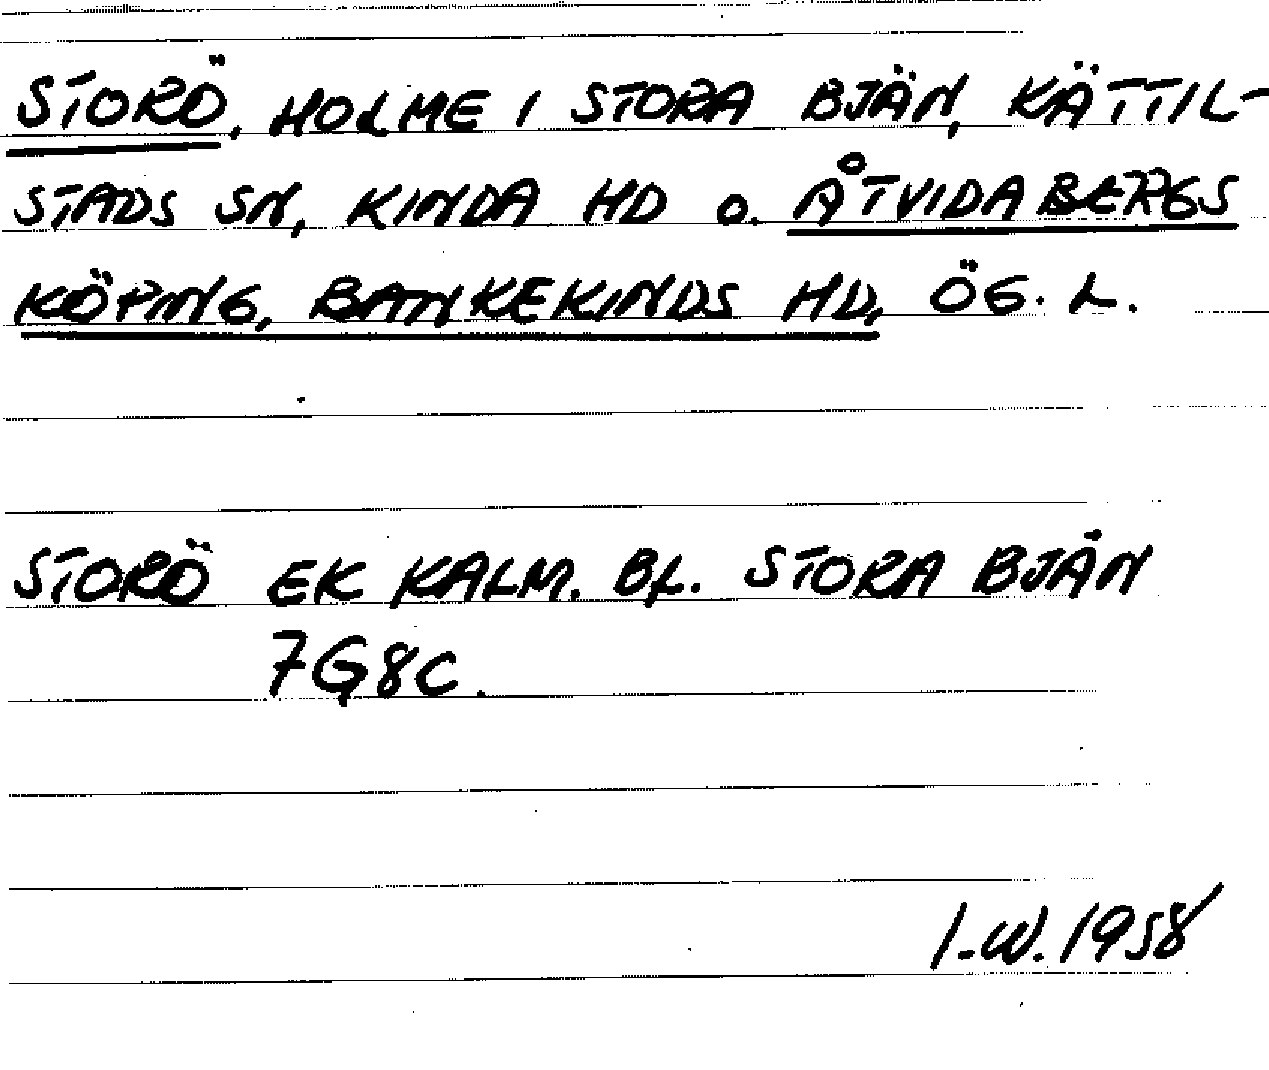 STORÖ, HOLME I STORA BJÄN, KÄTTIL-
STADS SN, KINDA HD O. ÅTVIDABERGS
KÖPING, BANKEKINDS HD, ÖG. L.
STORÖ EK KALM. BL. STORA BJÄN
7G8C.
I.W. 1958